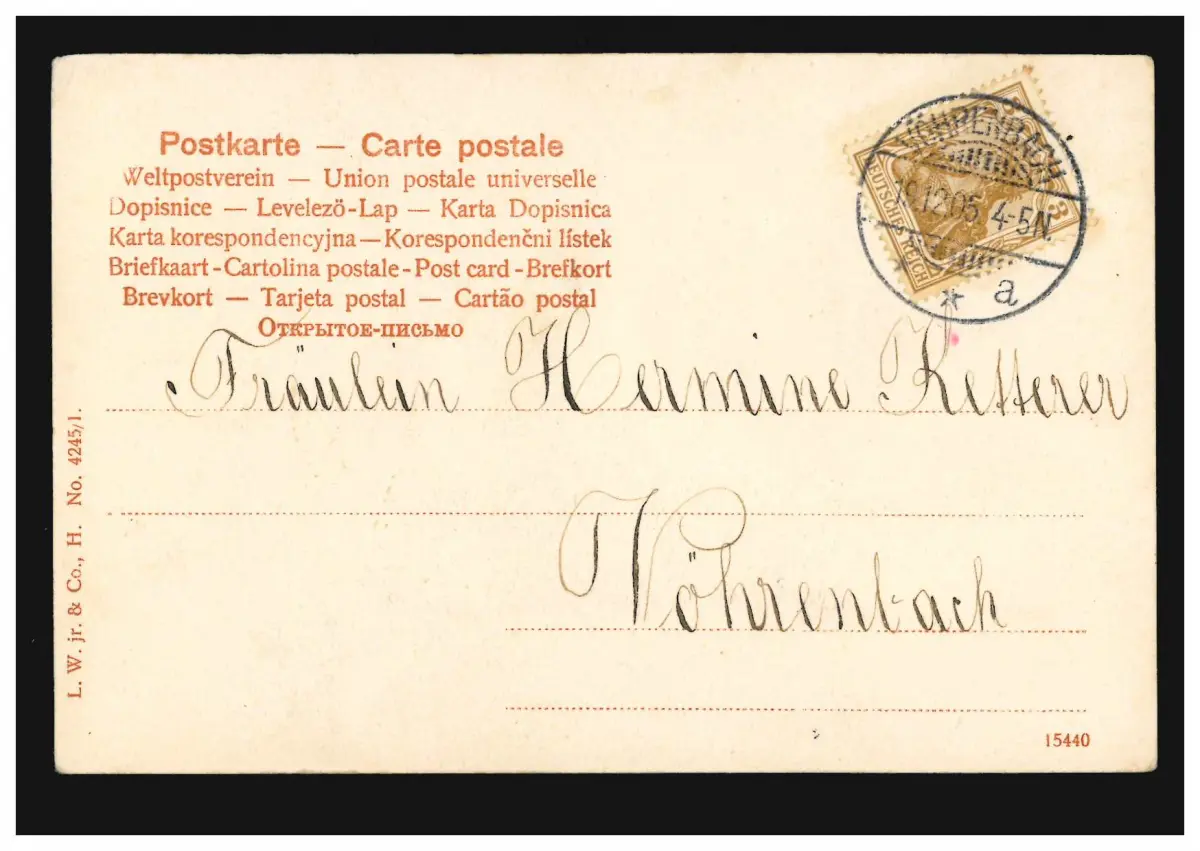 Postkarte — Carte postale
Weltpostverein — Union postale universelle
Dopisnice — Levelező-Lap — Karta Dopisnica
Karta korespondencyjna — Korespondenčni lístek
Briefkaart - Cartolina postale - Post card - Brefkort
Brevkort — Tarjeta postal — Cartão postal
Открытое-письмо
VÖHRENBACH
12.05 4-5N.
* a
DEUTSCHES REICH
3
Fräulein Hermine Ketterer
Vöhrenbach
L. W. jr. & Co., H. No. 4245/1.
15440